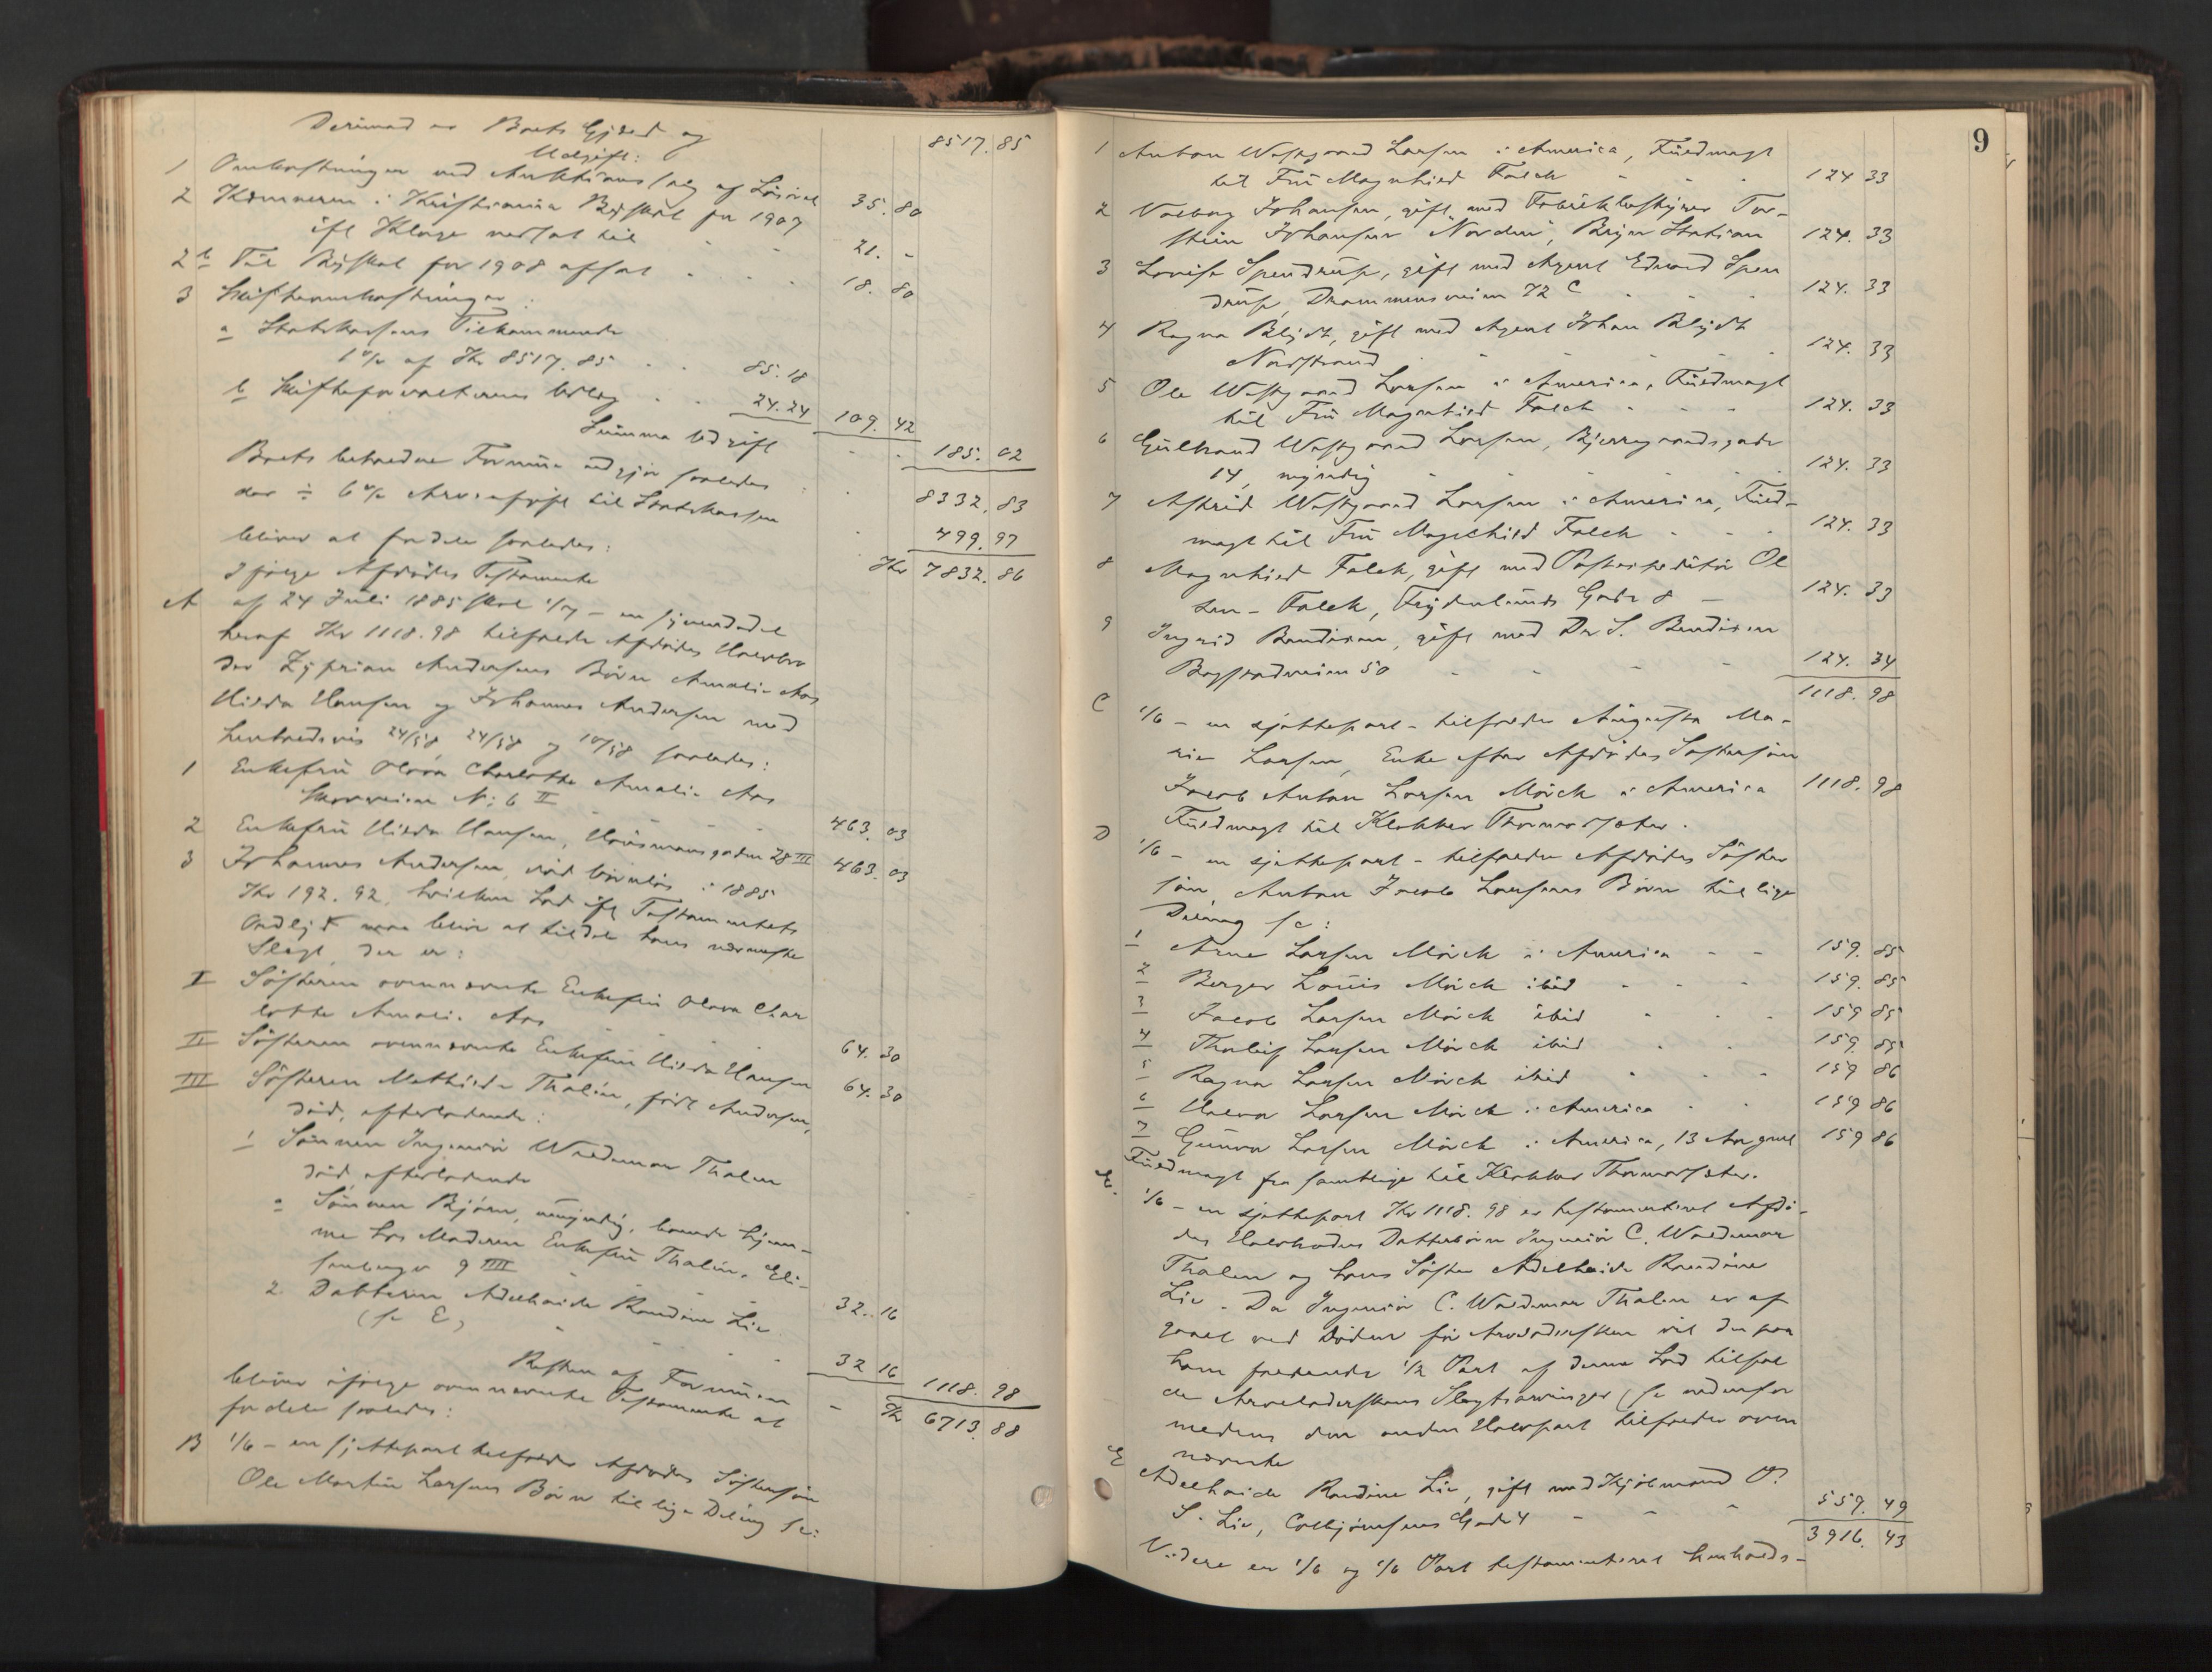 Derimod er Boets Gjæld og 8517. 85
Udgift:
1 Omkostninger ved Auktionssalg af Lösöre 35. 80
2 Kæmneren i Kristiania Byskat for 1907
ifl Klage nedsat til 21. -
2b Til Byskat for 1908 afsat 18. 80
3 Skifteomkostninger:
a Statskassens Tilkommende
1 % af Kr 8517. 85 85. 18
b Skifteforvalterens Udlæg 24. 24 109. 42
Summa Udgift 185. 02
Boets beholdne Formue udgjør saaledes 8332. 83
der ÷ 6% Arveafgift til Statskassen 499. 97
bliver at fordele saaledes: Kr 7832. 86
Ifölge Afdödes Testamente
A af 24 Juli 1885 skal 1/7 - en syvendedel
heraf Kr 1118. 98 tilfalde Afdödes Halvbro
der Zyprian Andersens Börn Amalie Aas
Hilda Hansen og Johannes Andersen med
henholdsvis 24/58 24/58 og 10/58 saaledes:
1 Enkefru Olava Charlotte Amalie Aas
N: 6 II 463. 03
2 Enkefru Hilda Hansen, Hausmansgaden 28 III 463. 03
3 Johannes Andersen, död barnlös i 1885
Kr 192. 92, hvilken Lod ifl Testamentets
Ordlyd maa blive at tildele hans nærmeste
Slægt, der er:
I Sösteren ovennævnte Enkefru Olava Char
lotte Amalie Aas 64. 30
II Sösteren ovennævnte Enkefru Hilda Hansen 64. 30
III Sösteren Mathilde Thalin, född Andersen,
död, efterladende:
1 Sönnen Ingeniör Waldemar Thalin
död, efterladende
a Sönnen Björn, umyndig, havende hjem-
me hos Moderen Enkefru Thalin, Eli-
senbergv 9 IIII 32. 16
2. Datteren Adelheide Randine Lie
(se E) 32 16 1118. 98
Resten af Formuen Kr 6713. 88
bliver ifölge ovennævnte Testamente at
fordele saaledes:
B 1/6 - en sjettepart tilfalder Afdödes Söstersön
Ole Martin Larsens Börn til lige Deling se:
9
1 Anton Westgaard Larsen i America, Fuldmagt
til Fru Magnhild Falck 124 33
2 Valborg Johansen, gift med Fabrikbestyrer Tor-
stein Johansen "Norden", Bryn Station 124. 33
3 Lovise Spendrup, gift med Agent Edvard Spen
drup, Drammensveien 72 C 124. 33
4 Ragna Blydt, gift med Agent Johan Blydt
Nordstrand 124. 33
5 Ole Westgaard Larsen i America, Fuldmagt
til Fru Magnhild Falck 124. 33
6 Gulbrand Westgaard Larsen, Bjerregaardsgade
14, myndig 124. 33
7 Astrid Westgaard Larsen i America, Fuld-
magt til Fru Magnhild Falck 124. 33
8 Magnhild Falck, gift med Postexpeditör Ol
sen - Falck, Frydenlunds Gade 8 124. 33
9 Ingrid Bendixen, gift med Dr S. Bendixen
Bogstadveien 50 124. 34
1118. 98
C 1/6 - en sjettepart - tilfalder Augusta Ma-
rie Larsen, Enke efter Afdödes Söstersön
Jacob Anton Larsen Mörch i America 1118. 98
Fuldmagt til Klokker Thormodsæter.
D 1/6 - en sjettepart - tilfalder Afdödes Söster
sön, Anton Jacob Larsens Börn til lige
Deling se:
1 Arne Larsen Mörch i America 159. 85
2 Berger Louis Mörch ibid 159. 85
3 Jacob Larsen Mörch ibid 159 85
4 Tholeif Larsen Mörch ibid 159. 85
5 Ragna Larsen Mörch ibid 159 86
6 Halvor Larsen Mörch i America 159 86
7 Gunvor Larsen Mörch i America, 13 Aar gml 159 86
Fuldmagt fra samtlige til Klokker Thormodsæter.
E. 1/6 - en sjettepart Kr 1118. 98 er testamenteret Afdö-
des Halvbroders Datterbörn Ingeniör C. Waldemar
Thalin og hans Söster Adelheide Randine
Lie. Da Ingeniör C. Waldemar Thalin er af
gaaet ved Döden för Arveladersken vil den paa
ham faldende 1/2 Part af denne Lod tilfal
de Arveladerskens Slægtsarvinger (se nedenfor
medens den anden Halvpart tilfalder oven
nævnte
E Adelheide Randine Lie, gift med Kjöbmand O.
S. Lie, Colbjörnsens Gade 4 559. 49
3916. 43
Videre er 1/6 og 1/6 Part testamenteret henholds-